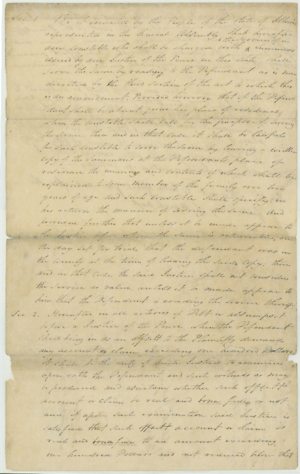 Sec. 1 Be it enacted by the People of the State of Illinois
represented in the General Assembly, that hereafter
any constable who shall be charged with a summons
issued by any Justice of the Peace in this state, shall
serve the same by reading to the Defendant as is now
directed by the first section of the act to which this
is an amendment, Provided however that if the Defen-
dant shall be absent from his place of residence
when the constable shall call for the purpose of serving
the same then and in that case it shall be lawful
for said constable to serve the same by leaving a written
copy of the summons at the Defendants, place of
residence the meaning and contents of which shall be
explained to some member of the family over ten
years of age and such constable shall specify in
his return the manner of serving the same and
the day set for trial that the defendant was in
the county at the time of leaving the said copy, then
and in that case the said Justice shall not consider
the service as valid unless it is made appear to
him that the Defendant is evading the service thereof
Sec. 2. Hereafter in all actions of Debt or assumpsit
before a Justice of the Peace, when the Defendant
shall bring in as an offsett to the Plaintiffs demand
any account or claim exceeding one hundred Dollars
it shall be the duty of said Justice to examine
upon oath the Defendant and such witnesses as may
be produced and ascertain whether such offsett
account or claim is real and bona fide, or not
and if upon such examination said Justice is
satisfied that such offsett account or claim is
real and bona fide to an amount exceeding
one hundred Dollars and not created before this